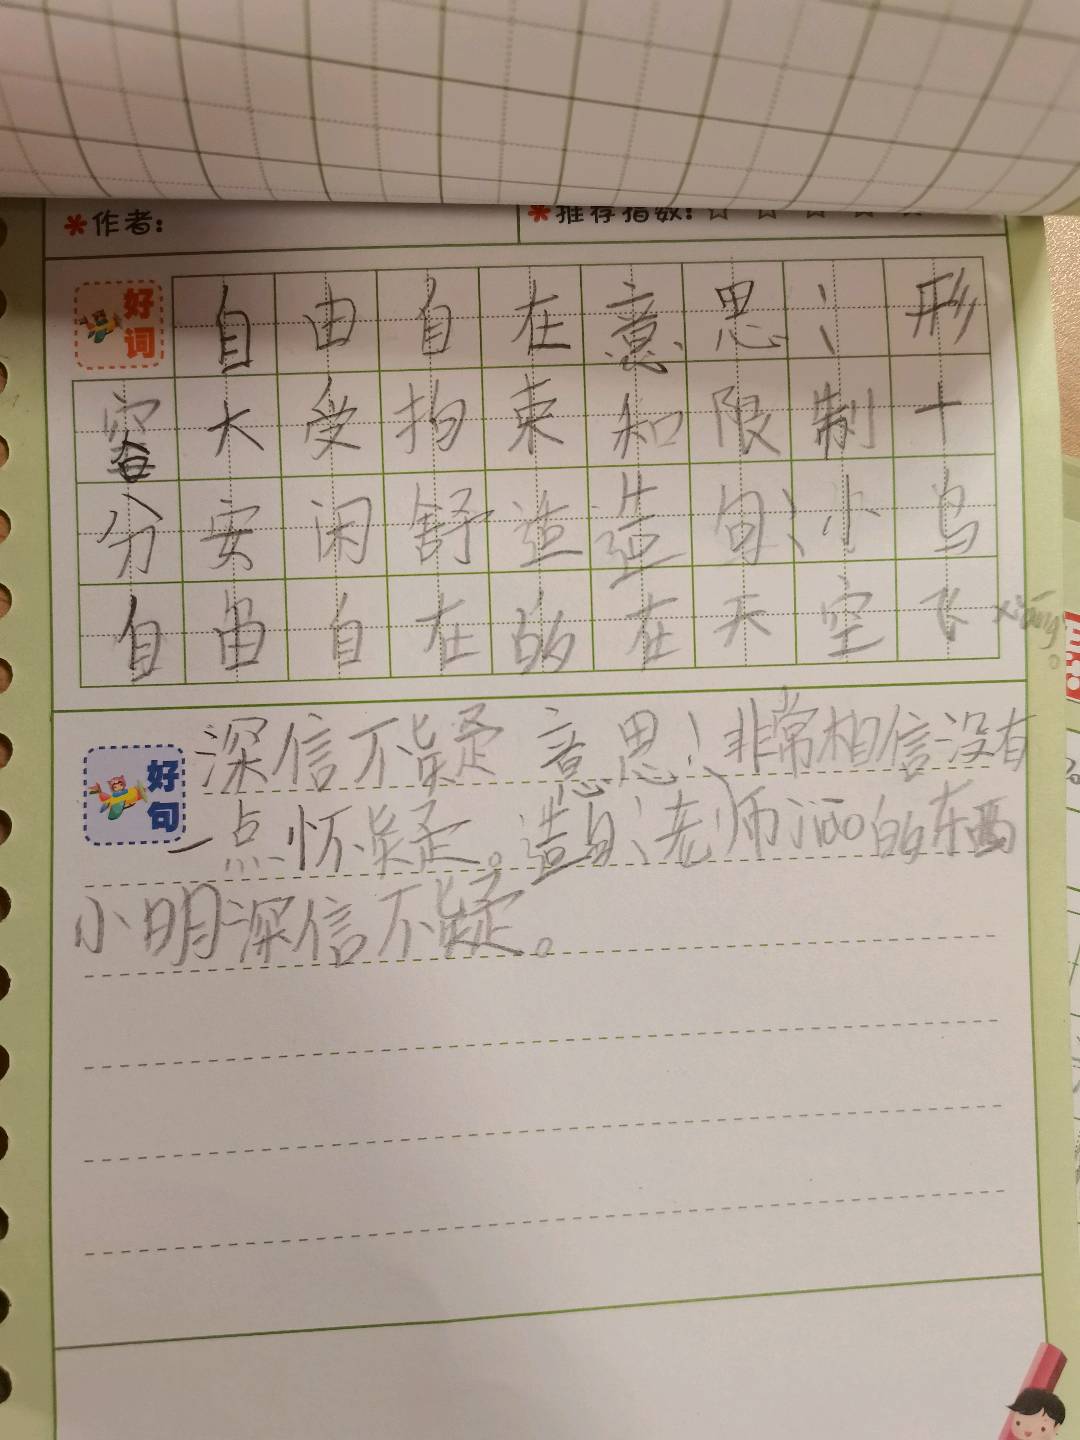 作者:
推荐指数:☆ ☆ ☆ ☆ ☆
好词
自由自在意思:形
容大受拘束和限制十
分安闲舒适造句:小鸟
自由自在的在天空飞xiáng。
好句
深信不疑 意思:非常相信没有
一点怀疑。造句:老师jiāo的东西
小明深信不疑。